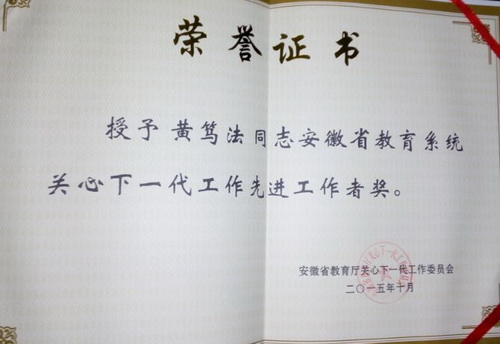 荣誉证书
授予黄笃法同志安徽省教育系统
关心下一代工作先进工作者奖。
安徽省教育厅关心下一代工作委员会
二〇一五年十月